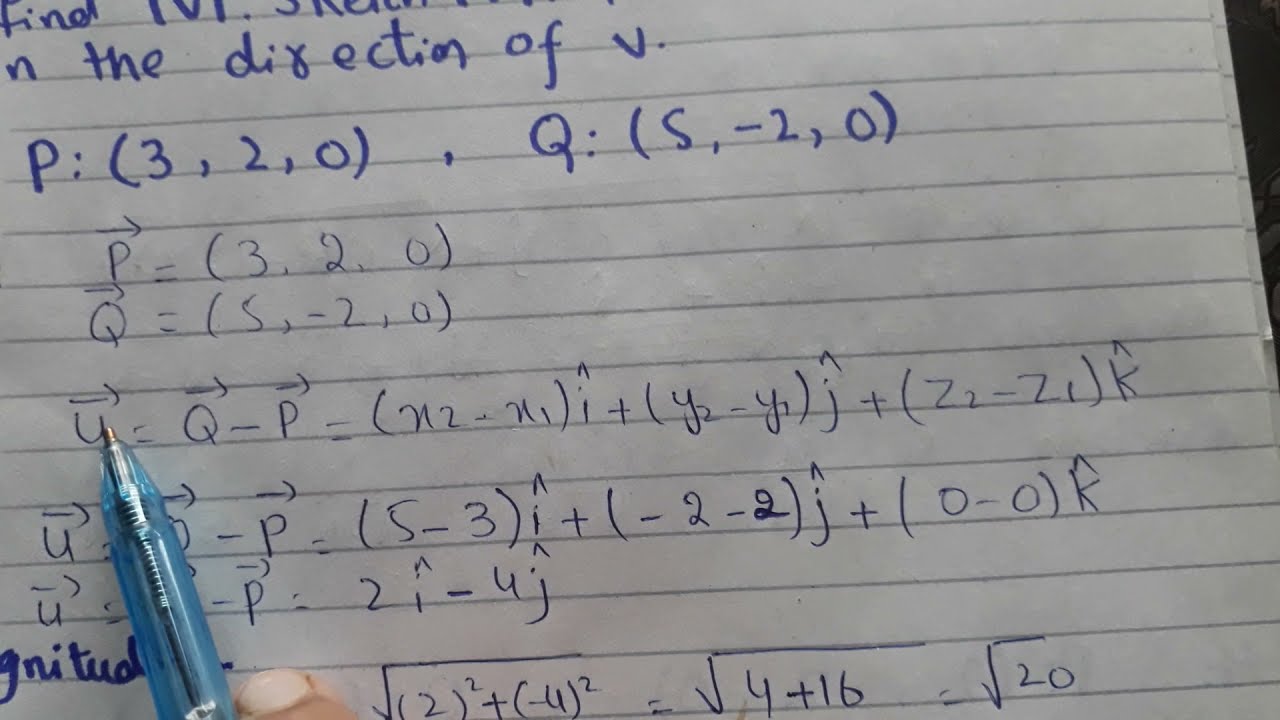 find |v|. Sketch
n the direction of v.
P: (3, 2, 0) , Q: (5, -2, 0)
P⃗ = (3, 2, 0)
Q⃗ = (5, -2, 0)
u⃗ = Q⃗ - P⃗ = (x₂ - x₁)î + (y₂ - y₁)ĵ + (z₂ - z₁)k̂
u⃗ = - P⃗ = (5 - 3)î + (-2 - 2)ĵ + (0 - 0)k̂
u⃗ = - P⃗ = 2î - 4ĵ
gnitud √(2)² + (-4)² = √4 + 16 = √20